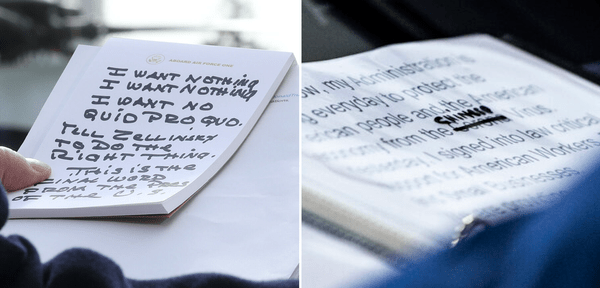 ABOARD AIR FORCE ONE
I WANT NOTHING
I WANT NOTHING
I WANT NO
QUID PRO QUO.
TELL ZELLINSKY
TO DO THE
RIGHT THING.
THIS IS THE
FINAL WORD
FROM THE PRES
OF THE U.S.
ow, my Administration is
g everyday to protect the
can people and the American
from the CHINESE
I signed into law critical
for American Workers
Successes.